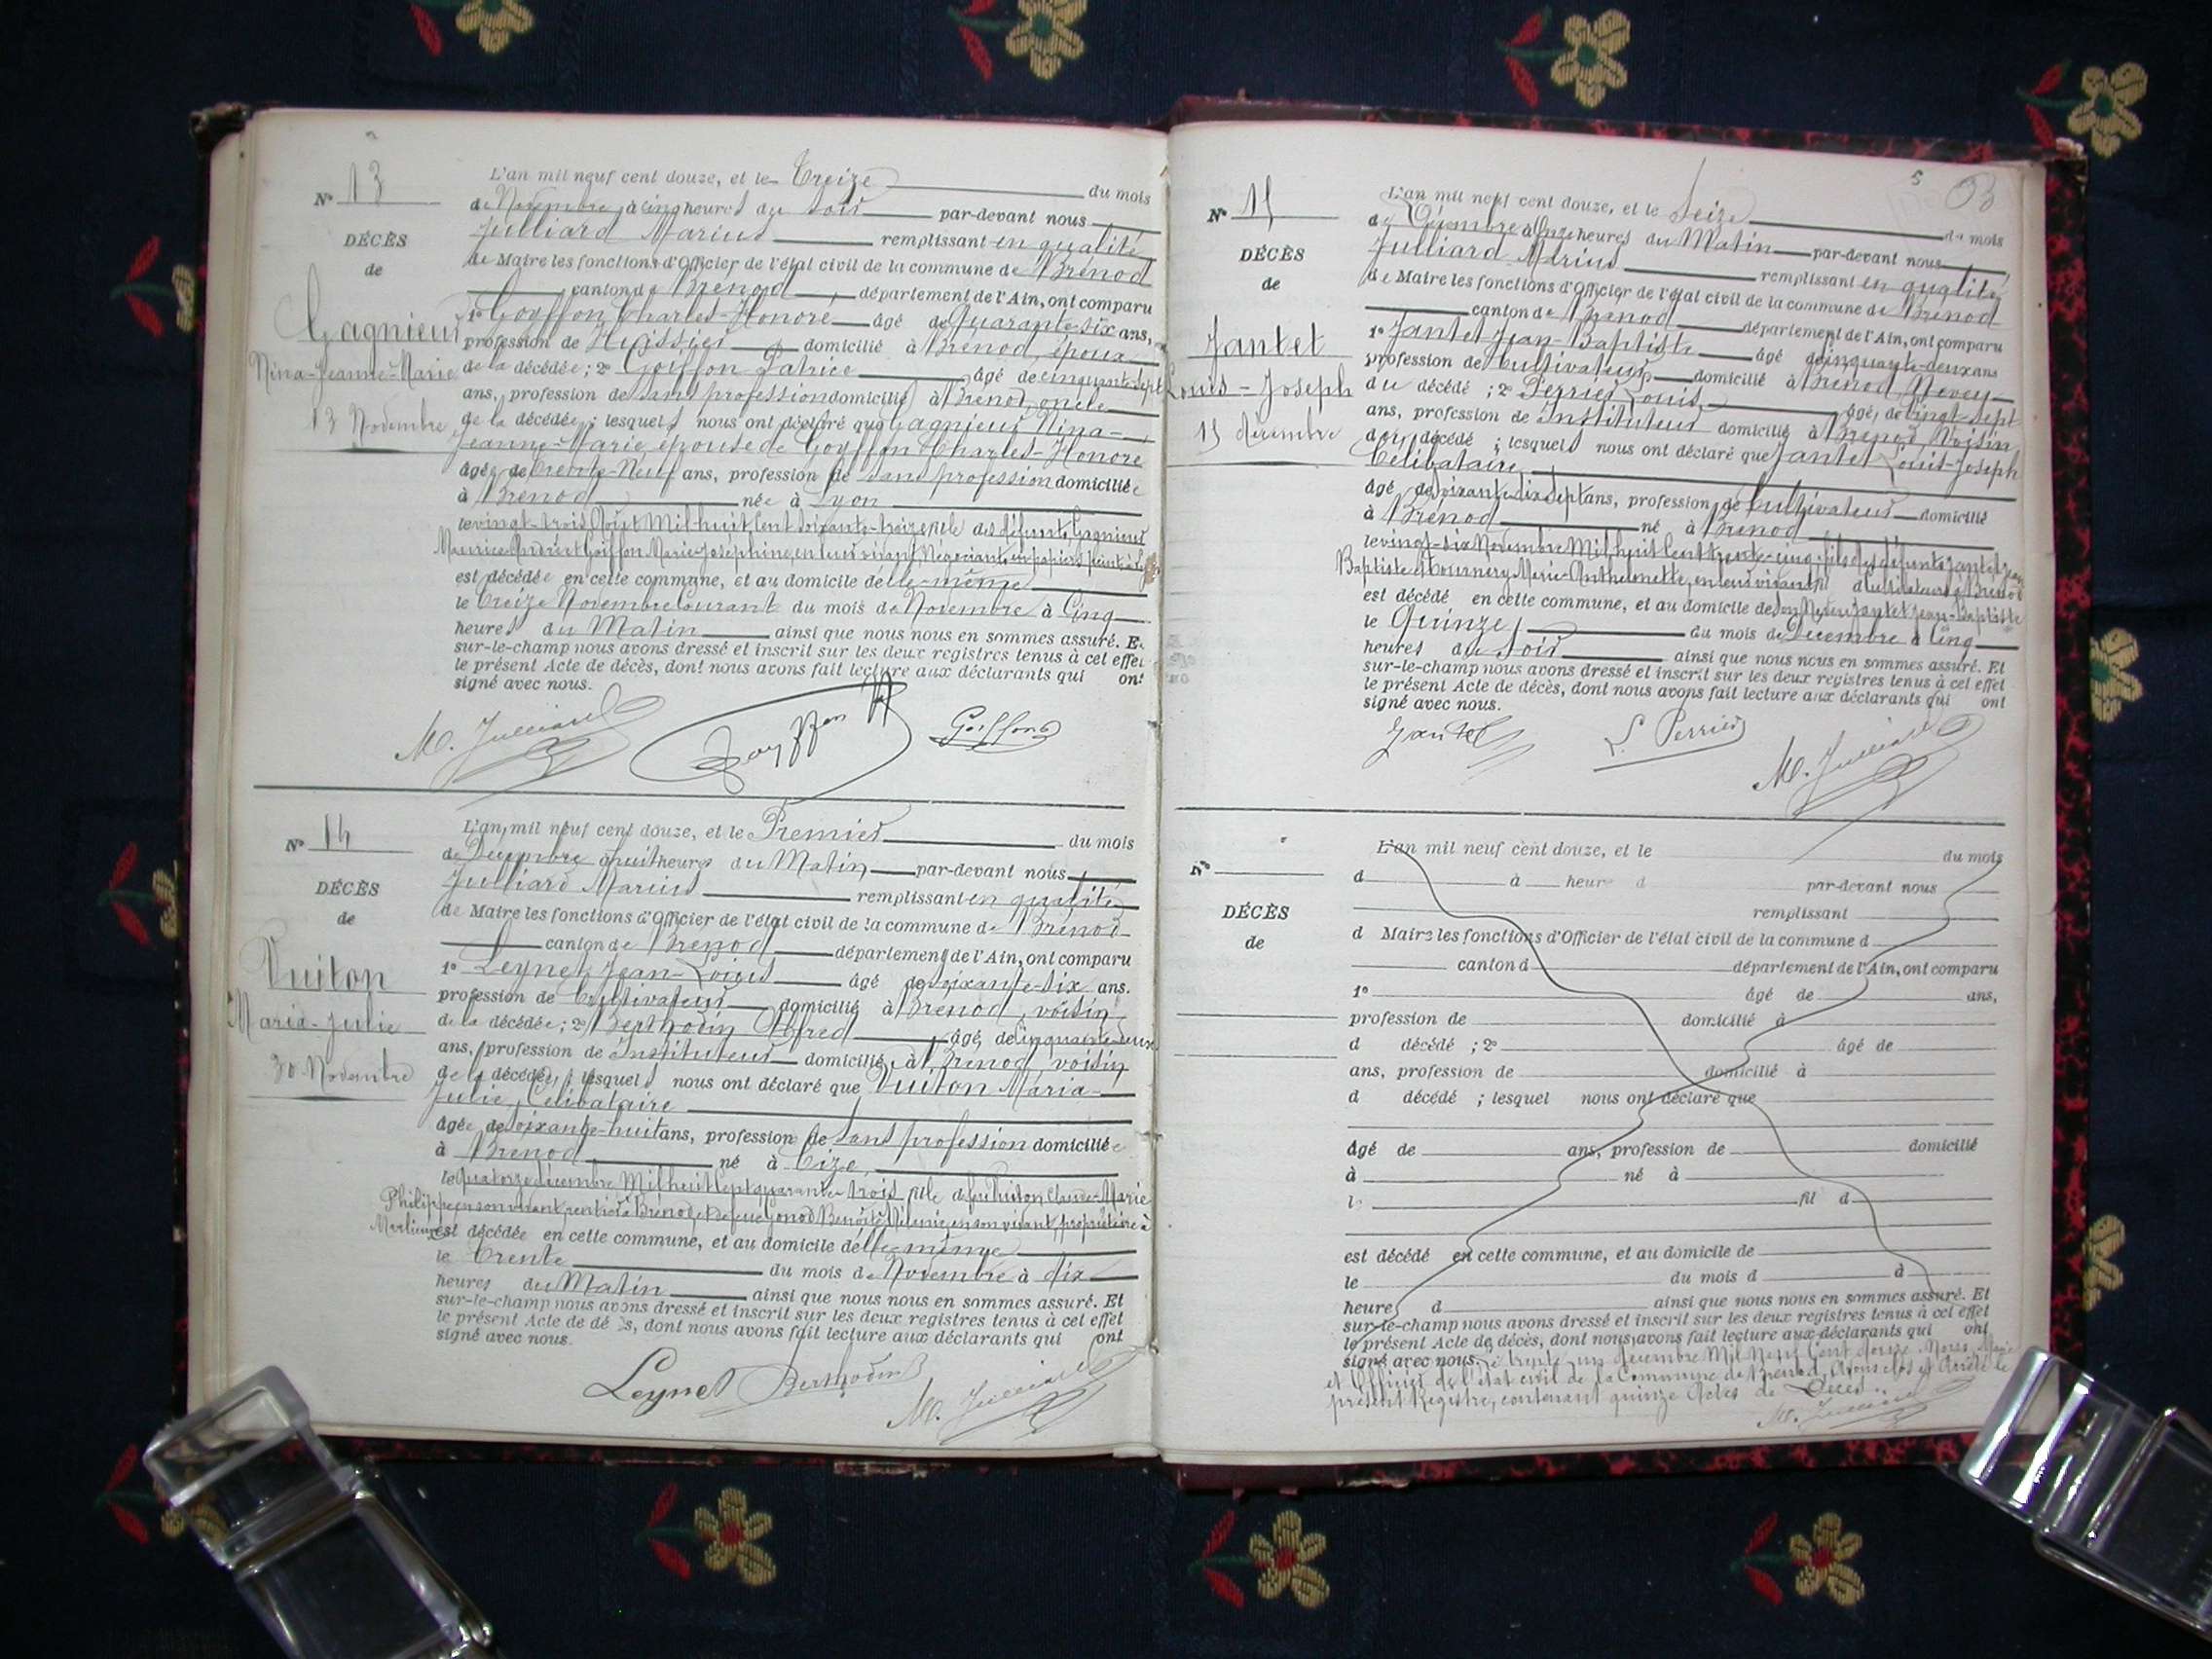 N° 13
DÉCÈS
de
Gagnieur
Nina-Jeanne-Marie
13 Novembre
L'an mil neuf cent douze, et le Treize du mois
de Novembre à cinq heures du soir par-devant nous
Julliard Marius remplissant en qualité
de Maire les fonctions d'Officier de l'état civil de la commune de Brénod
canton de Brénod département de l'Ain, ont comparu
1° Goyffon Charles-Honoré âgé de Quarante-six ans,
profession de Huissier domicilié à Brénod, époux
de la décédée ; 2° Goiffon Patrice âgé de cinquante-sept
ans, profession de sans profession domicilié à Brénod, oncle
de la décédée ; lesquels nous ont déclaré que Gagnieur Nina-
Jeanne-Marie, épouse de Goyffon Charles-Honoré
âgée de Trente-Neuf ans, profession de sans profession domiciliée
à Brénod née à Lyon
le vingt-trois Août Mil huit Cent soixante-treize fille des défunts Gagnieur
Maurice André et Goiffon Marie-Joséphine, en leur vivant Négociants en papiers peints à
est décédée en cette commune, et au domicile d'elle-même
le Treize Novembre Courant du mois de Novembre à Cinq
heures du Matin ainsi que nous nous en sommes assuré. Et
sur-le-champ nous avons dressé et inscrit sur les deux registres tenus à cet effet
le présent Acte de décès, dont nous avons fait lecture aux déclarants qui ont
signé avec nous.
M. Julliard Goyffon Goiffon
N° 14
DÉCÈS
de
Vuiton
Maria-Julie
30 Novembre
L'an mil neuf cent douze, et le Premier du mois
de Décembre à huit heures du Matin par-devant nous
Julliard Marius remplissant en qualité
de Maire les fonctions d'Officier de l'état civil de la commune de Brénod
canton de Brénod département de l'Ain, ont comparu
1° Leynet Jean-Louis âgé de soixante-six ans.
profession de Cultivateur domicilié à Brénod, voisin
de la décédée ; 2° Berthodin Alfred âgé de Cinquante-deux
ans, profession de Instituteur domicilié à Brénod, voisin
de la décédée ; lesquels nous ont déclaré que Vuiton Maria-
Julie, Célibataire
âgée de soixante-huit ans, profession de sans profession domiciliée
à Brénod né à Cize,
le Quatorze décembre Mil huit Cent quarante-trois fille de feu Vuiton Claude-Marie
Philippe en son vivant rentier à Brénod, et de feue Gonod Benoîte Mélanie en son vivant, propriétaire à
est décédée en cette commune, et au domicile d'elle-même
le Trente du mois de Novembre à dix
heures du Matin ainsi que nous nous en sommes assuré. Et
sur-le-champ nous avons dressé et inscrit sur les deux registres tenus à cet effet
le présent Acte de décès, dont nous avons fait lecture aux déclarants qui ont
signé avec nous.
Leynet Berthodin
M. Julliard
5
N° 15
DÉCÈS
de
Jantet
Louis-Joseph
15 décembre
L'an mil neuf cent douze, et le Seize du mois
de Décembre à Onze heures du Matin par-devant nous
Julliard Marius remplissant en qualité
de Maire les fonctions d'Officier de l'état civil de la commune de Brénod
canton de Brénod département de l'Ain, ont comparu
1° Jantet Jean-Baptiste âgé de cinquante-deux ans
profession de Cultivateur domicilié à Brénod, Neveu
du décédé ; 2° Perrier Louis, âgé de Vingt-sept
ans, profession de Instituteur domicilié à Brénod Voisin
du décédé ; lesquels nous ont déclaré que Jantet Louis-Joseph
Célibataire,
âgé de soixante-dix-sept ans, profession de Cultivateur domicilié
à Brénod né à Brénod
le vingt-six Novembre Mil huit Cent trente-cinq, fils des défunts Jantet Jean
Baptiste et Tournery Marie-Anthelmette, en leur vivant Cultivateurs à Brénod
est décédé en cette commune, et au domicile de son Neveu Jantet Jean-Baptiste
le Quinze du mois de Décembre à Cinq
heures du Soir ainsi que nous nous en sommes assuré. Et
sur-le-champ nous avons dressé et inscrit sur les deux registres tenus à cet effet
le présent Acte de décès, dont nous avons fait lecture aux déclarants qui ont
signé avec nous.
Jantet L. Perrier
M. Julliard
N°
DÉCÈS
de
L'an mil neuf cent douze, et le du mois
d à heure d par-devant nous
remplissant
d Maire les fonctions d'Officier de l'état civil de la commune d
canton d département de l'Ain, ont comparu
1° âgé de ans,
profession de domicilié à
d décédé ; 2° âgé de
ans, profession de domicilié à
d décédé ; lesquel nous ont déclaré que
âgé de ans, profession de domicilié
à né à
l fil d
est décédé en cette commune, et au domicile de
le du mois d à
heure d ainsi que nous nous en sommes assuré. Et
sur-le-champ nous avons dressé et inscrit sur les deux registres tenus à cet effet
le présent Acte de décès, dont nous avons fait lecture aux déclarants qui ont
signé avec nous. Le trente un décembre Mil Neuf Cent douze. Nous, Maire
et Officier de l'état civil de la Commune de Brénod, avons clos et Arrêté le
présent Registre, contenant quinze Actes de Décès.
M. Julliard